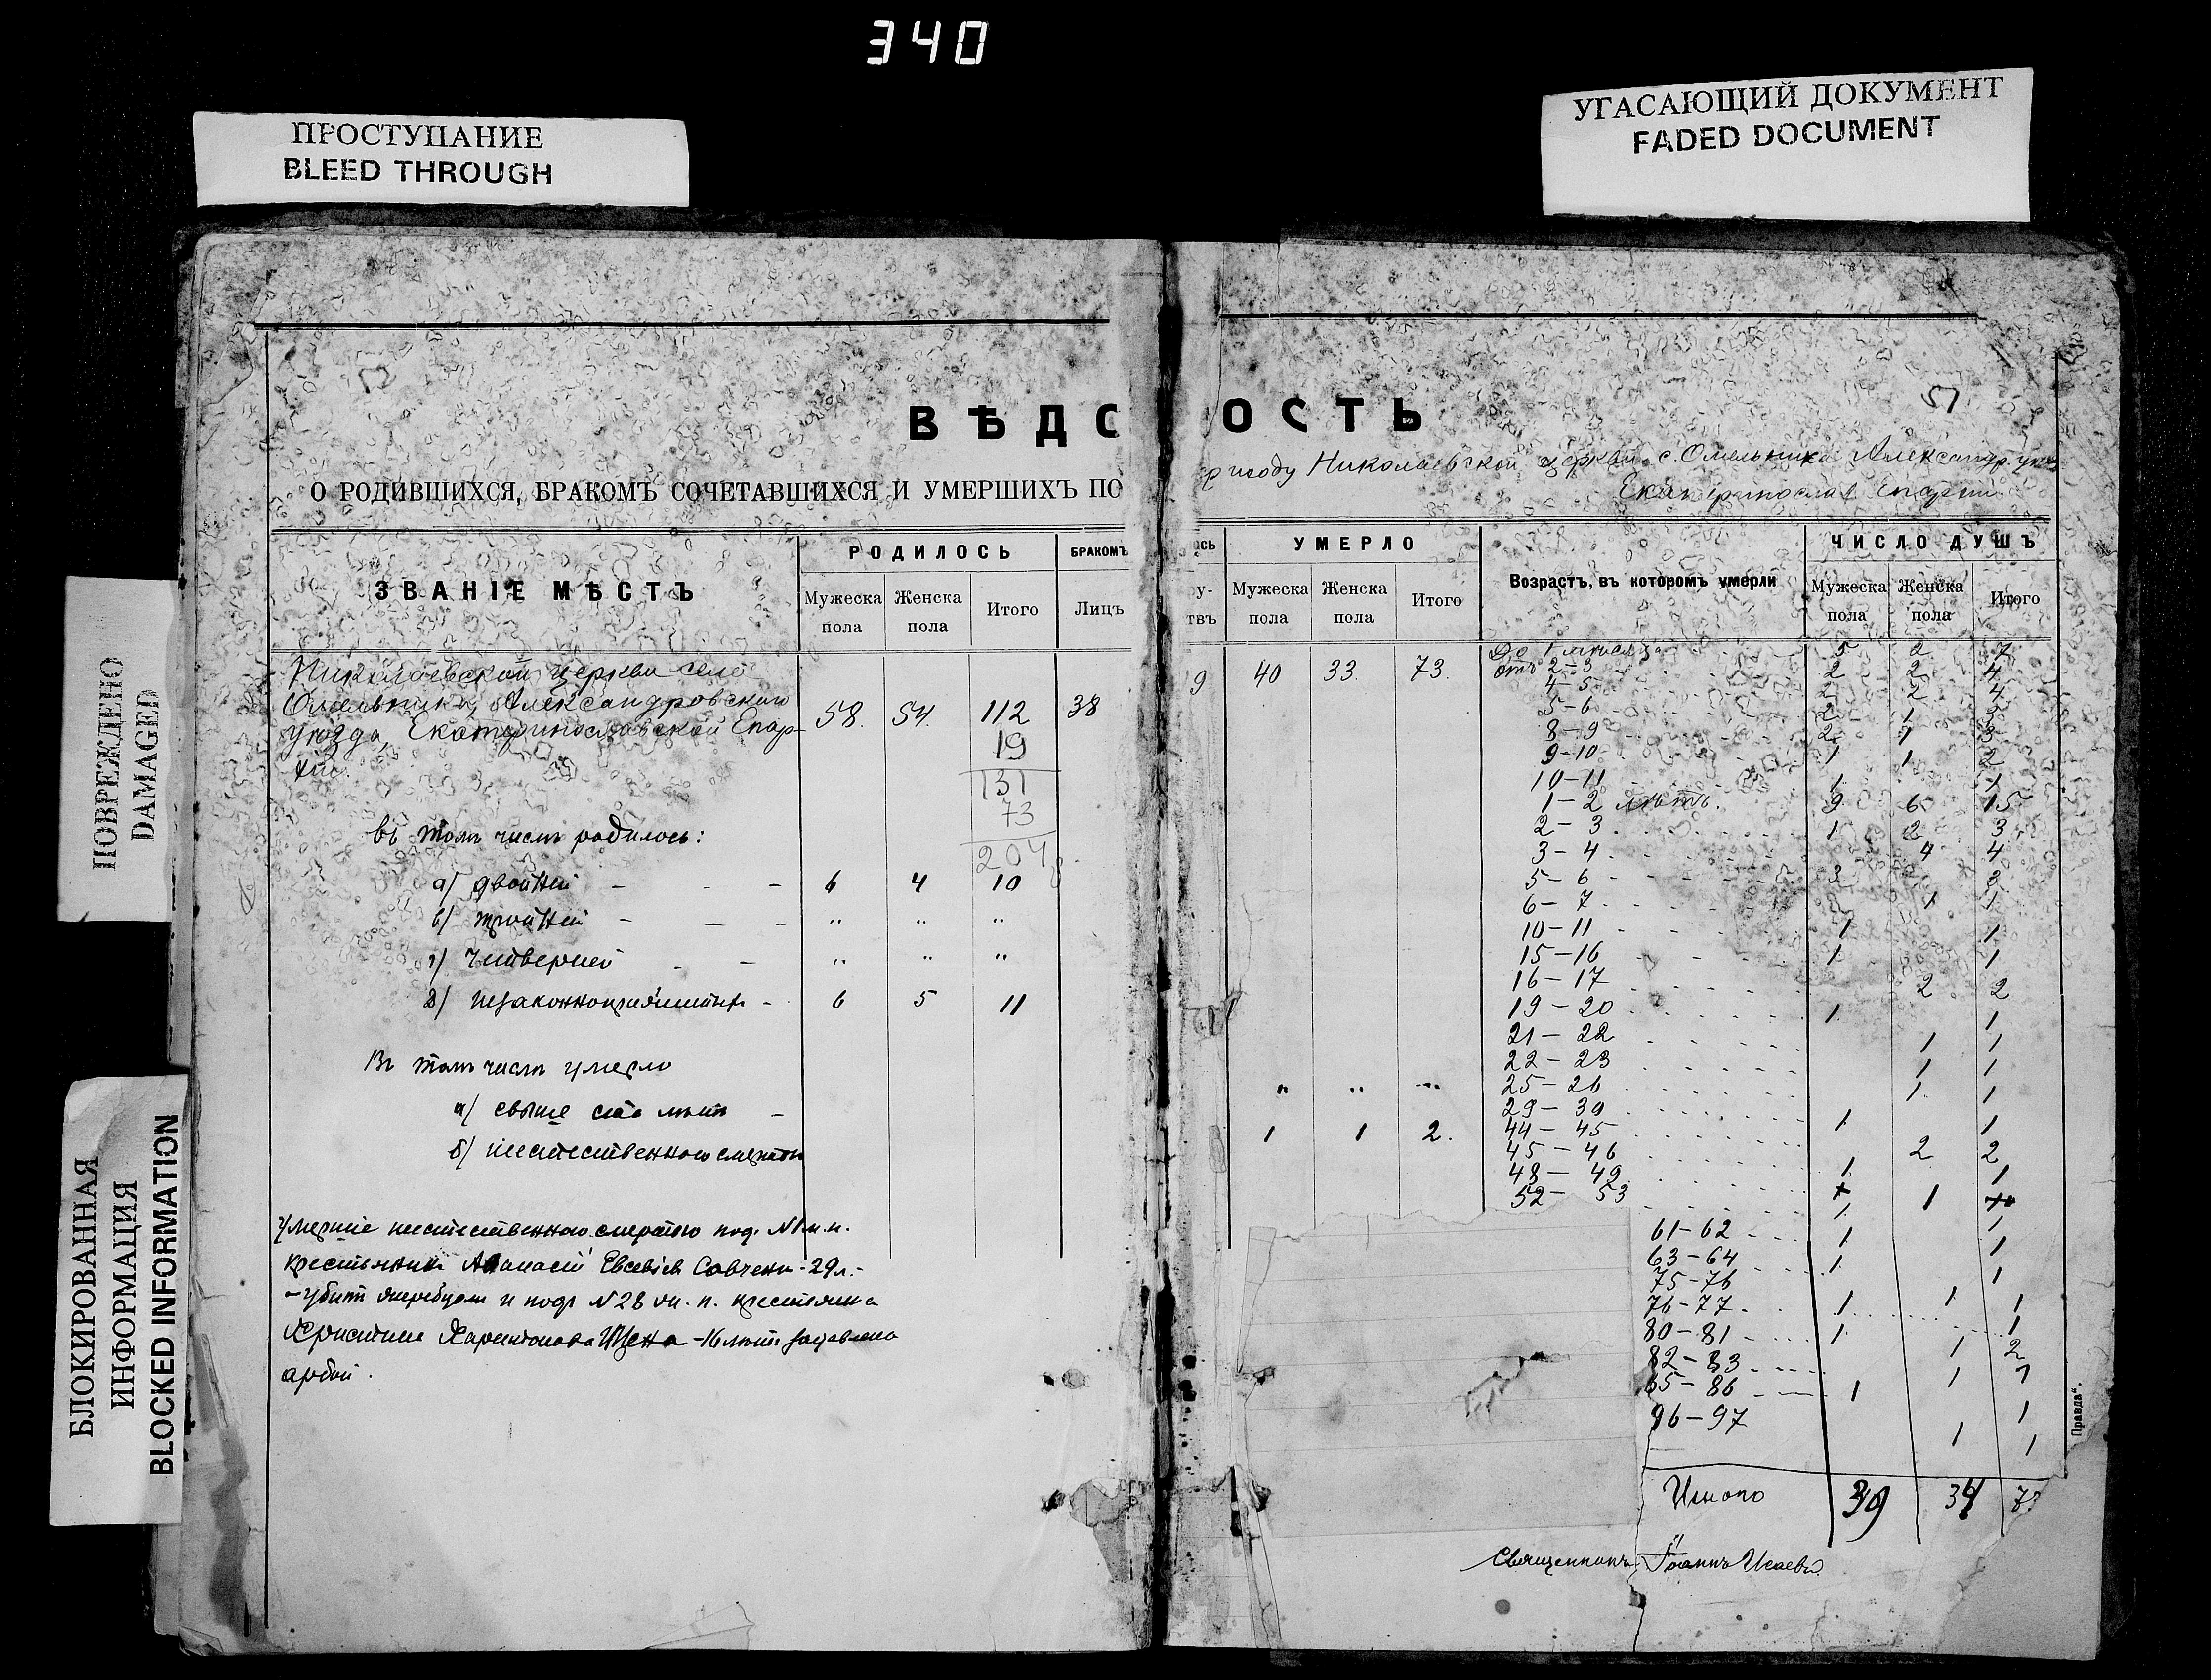 340
ПРОСТУПАНИЕ
BLEED THROUGH
УГАСАЮЩИЙ ДОКУМЕНТ
FADED DOCUMENT
ПОВРЕЖДЕНО
DAMAGED
БЛОКИРОВАННАЯ
ИНФОРМАЦИЯ
BLOCKED INFORMATION
51
ВѢДО ОСТЬ
О РОДИВШИХСЯ, БРАКОМЪ СОЧЕТАВШИХСЯ И УМЕРШИХЪ ПО приходу Николаевской церкви с. Омельника Александр. уѣз.
Екатеринослав. Епархіи
ЗВАНІЕ МѢСТЪ
РОДИЛОСЬ
Мужеска пола
Женска пола
Итого
БРАКОМЪ
Лицъ
УМЕРЛО
Мужеска пола
Женска пола
Итого
Возрастъ, въ которомъ умерли
ЧИСЛО ДУШЪ
Мужеска пола
Женска пола
Итого
Николаевской церкви село
Омельника, Александровского
уѣзда, Екатеринославской Епар-
хіи.
58. 54. 112 38
19
131
73
204
въ томъ числѣ родилось:
а) двойней - - - 6 4 10
в) тройней - - - " " "
г) четверней - - " " "
д) незаконнорожденныхъ - 6 5 11
Въ томъ числѣ умерло
а) свыше ста лѣтъ - " " "
б) неестественною смертью 1 1 2.
Умершіе неестественною смертію под. №1 м. п.
крестьянинъ Аѳанасій Евсевіев Савченко - 29 л. -
- убитъ жеребцом и подъ №28 ж. п. крестьянка
Христина Харитонова - 16 лѣтъ задавлена
арбой.
9 40 33. 73.
До 1 мѣсяца 5 2 7
отъ 2-3 2 2 4
4-5 2 2 4
5-6 2 1 3
8-9 2 1 3
9-10 1 1 2
10-11 1 1
1-2 лѣтъ. 9 6 15
2-3 1 2 3
3-4 4 4
5-6 3 3
6-7 1 1
10-11 1 1
15-16 1 1
16-17 2 2
19-20 1 1
21-22 1 1
22-23 1 1
25-26 1 1
29-30 1 1
44-45 2 2
45-46 1 1
48-49 1
52-53 1 1
61-62 1 1
63-64 1 1
75-76 1 1
76-77 1 1
80-81 1 1 2
82-83 1 1
85-86 1 1
96-97 1 1
Итого 39 34 73
Священникъ Іоаннъ Исаевъ
Правда".